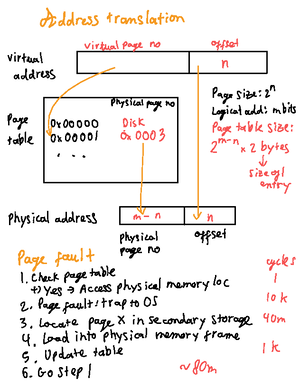 Address translation
virtual page no offset
virtual address n
Page size: 2^n
Logical add: m bits
Page table size:
2^m-n × 2 bytes
size of 1 entry
Physical page no
Page table
0x00000 Disk
0x00001 0x0003
...
Physical address m-n n
physical page no offset
Page fault
cycles
1. Check page table 1
↳ Yes → Access physical memory loc
2. Page fault: trap to OS 10k
3. Locate page X in secondary storage 40m
4. Load into physical memory frame
5. Update table 1k
6. Go step 1
~80m